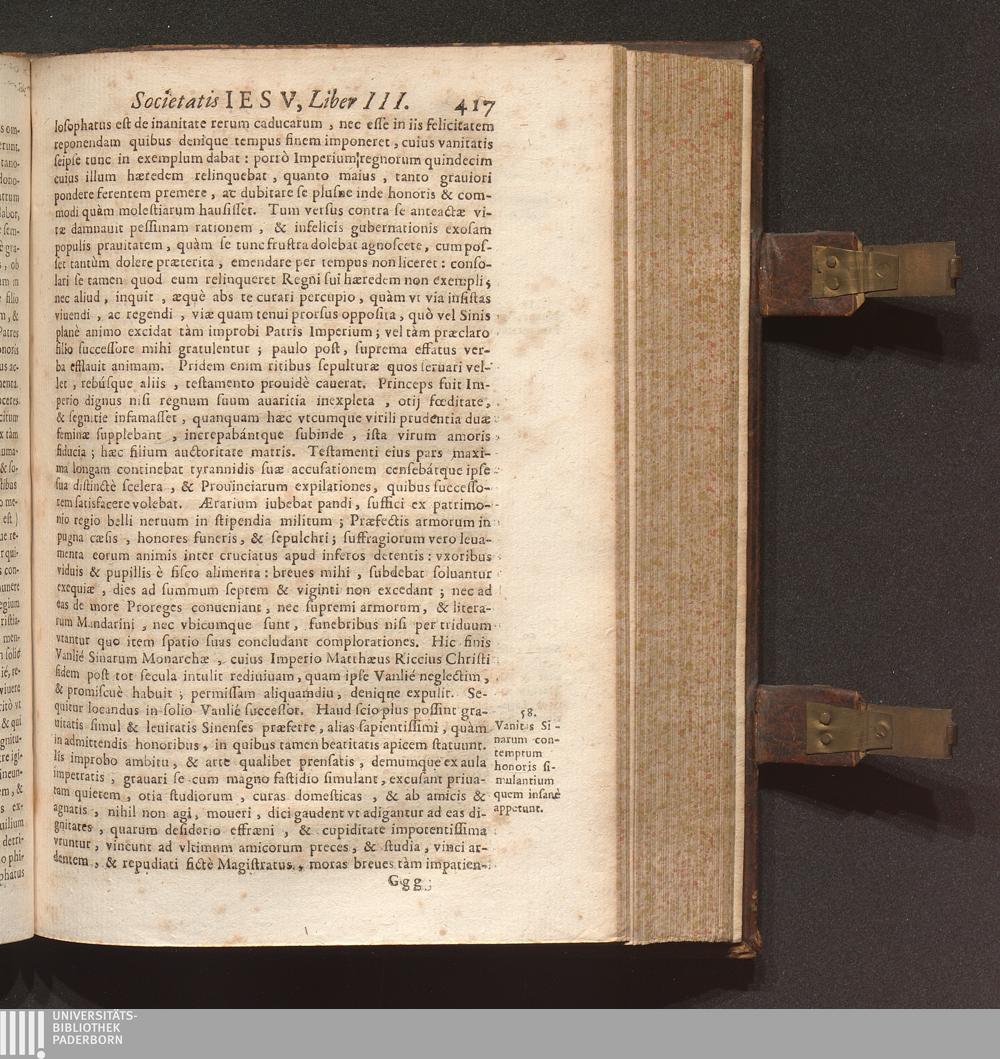 Societatis IESV, Liber III. 417
losophatus est de inanitate rerum caducarum , nec esse in iis felicitatem
reponendam quibus denique tempus finem imponeret, cuius vanitatis
seipse tunc in exemplum dabat : porrò Imperium regnorum quindecim
cuius illum hæredem relinquebat , quanto maius , tanto grauiori
pondere ferentem premere , ac dubitare se plusne inde honoris & com-
modi quàm molestiarum hausisset. Tum versus contra se anteactæ vi-
tæ damnauit pessimam rationem , & infelicis gubernationis exosam
populis prauitatem , quàm se tunc frustra dolebat agnoscere, cum pos-
set tantùm dolere præterita , emendare per tempus non liceret : conso-
lari se tamen quod eum relinqueret Regni sui hæredem non exempli ;
nec aliud , inquit , æquè abs te curari percupio , quàm vt via insistas
viuendi , ac regendi , viæ quam tenui prorsus opposita , quò vel Sinis
planè animo excidat tàm improbi Patris Imperium ; vel tàm præclaro
filio successore mihi gratulentur ; paulo post , suprema effatus ver-
ba efflauit animam. Pridem enim ritibus sepulturæ quos seruari vel-
let , rebúsque aliis , testamento prouidè cauerat. Princeps fuit Im-
perio dignus nisi regnum suum auaritia inexpleta , otij fœditate ,
& segnitie infamasset , quanquam hæc vtcumque virili prudentia duæ
feminæ supplebant , increpabántque subinde , ista virum amoris
fiducia ; hæc filium auctoritate matris. Testamenti eius pars maxi-
ma longam continebat tyrannidis suæ accusationem censebátque ipse
sua distinctè scelera , & Prouinciarum expilationes, quibus successo-
rem satisfacere volebat. Ærarium iubebat pandi, suffici ex patrimo-
nio regio belli neruum in stipendia militum ; Præfectis armorum in
pugna cæsis , honores funeris, & sepulchri ; suffragiorum vero leua-
menta eorum animis inter cruciatus apud inferos detentis : vxoribus
viduis & pupillis è fisco alimenta : breues mihi , subdebat soluantur
exequiæ , dies ad summum septem & viginti non excedant ; nec ad
eas de more Proreges conueniant , nec supremi armorum, & litera-
rum Mandarini , nec vbicumque sunt, funebribus nisi per triduum
vtantur quo item spatio suas concludant complorationes. Hic finis
Vanlié Sinarum Monarchæ , cuius Imperio Matthæus Riccius Christi
fidem post tot secula intulit rediuiuam , quam ipse Vanlié neglectim ,
& promiscuè habuit ; permissam aliquamdiu , denique expulit. Se-
quitur locandus in solio Vanlié successor. Haud scio plus possint gra-
uitatis simul & leuitatis Sinenses præferre , alias sapientissimi , quàm
in admittendis honoribus , in quibus tamen beatitatis apicem statuunt.
Iis improbo ambitu , & arte qualibet prensatis , demumque ex aula
impetratis ; grauari se cum magno fastidio simulant , excusant priua-
tam quietem , otia studiorum , curas domesticas , & ab amicis &
agnatis , nihil non agi, moueri , dici gaudent vt adigantur ad eas di-
gnitates , quarum desiderio effræni , & cupiditate impotentissima
vruntur, vincunt ad vltimum amicorum preces, & studia , vinci ar-
dentem , & repudiati fictè Magistratus , moras breues tàm impatien-
Ggg
58.
Vanitas Si-
narum con-
temptum
honoris si-
mulantium
quem insanè
appetunt.
UNIVERSITÄTS-
BIBLIOTHEK
PADERBORN